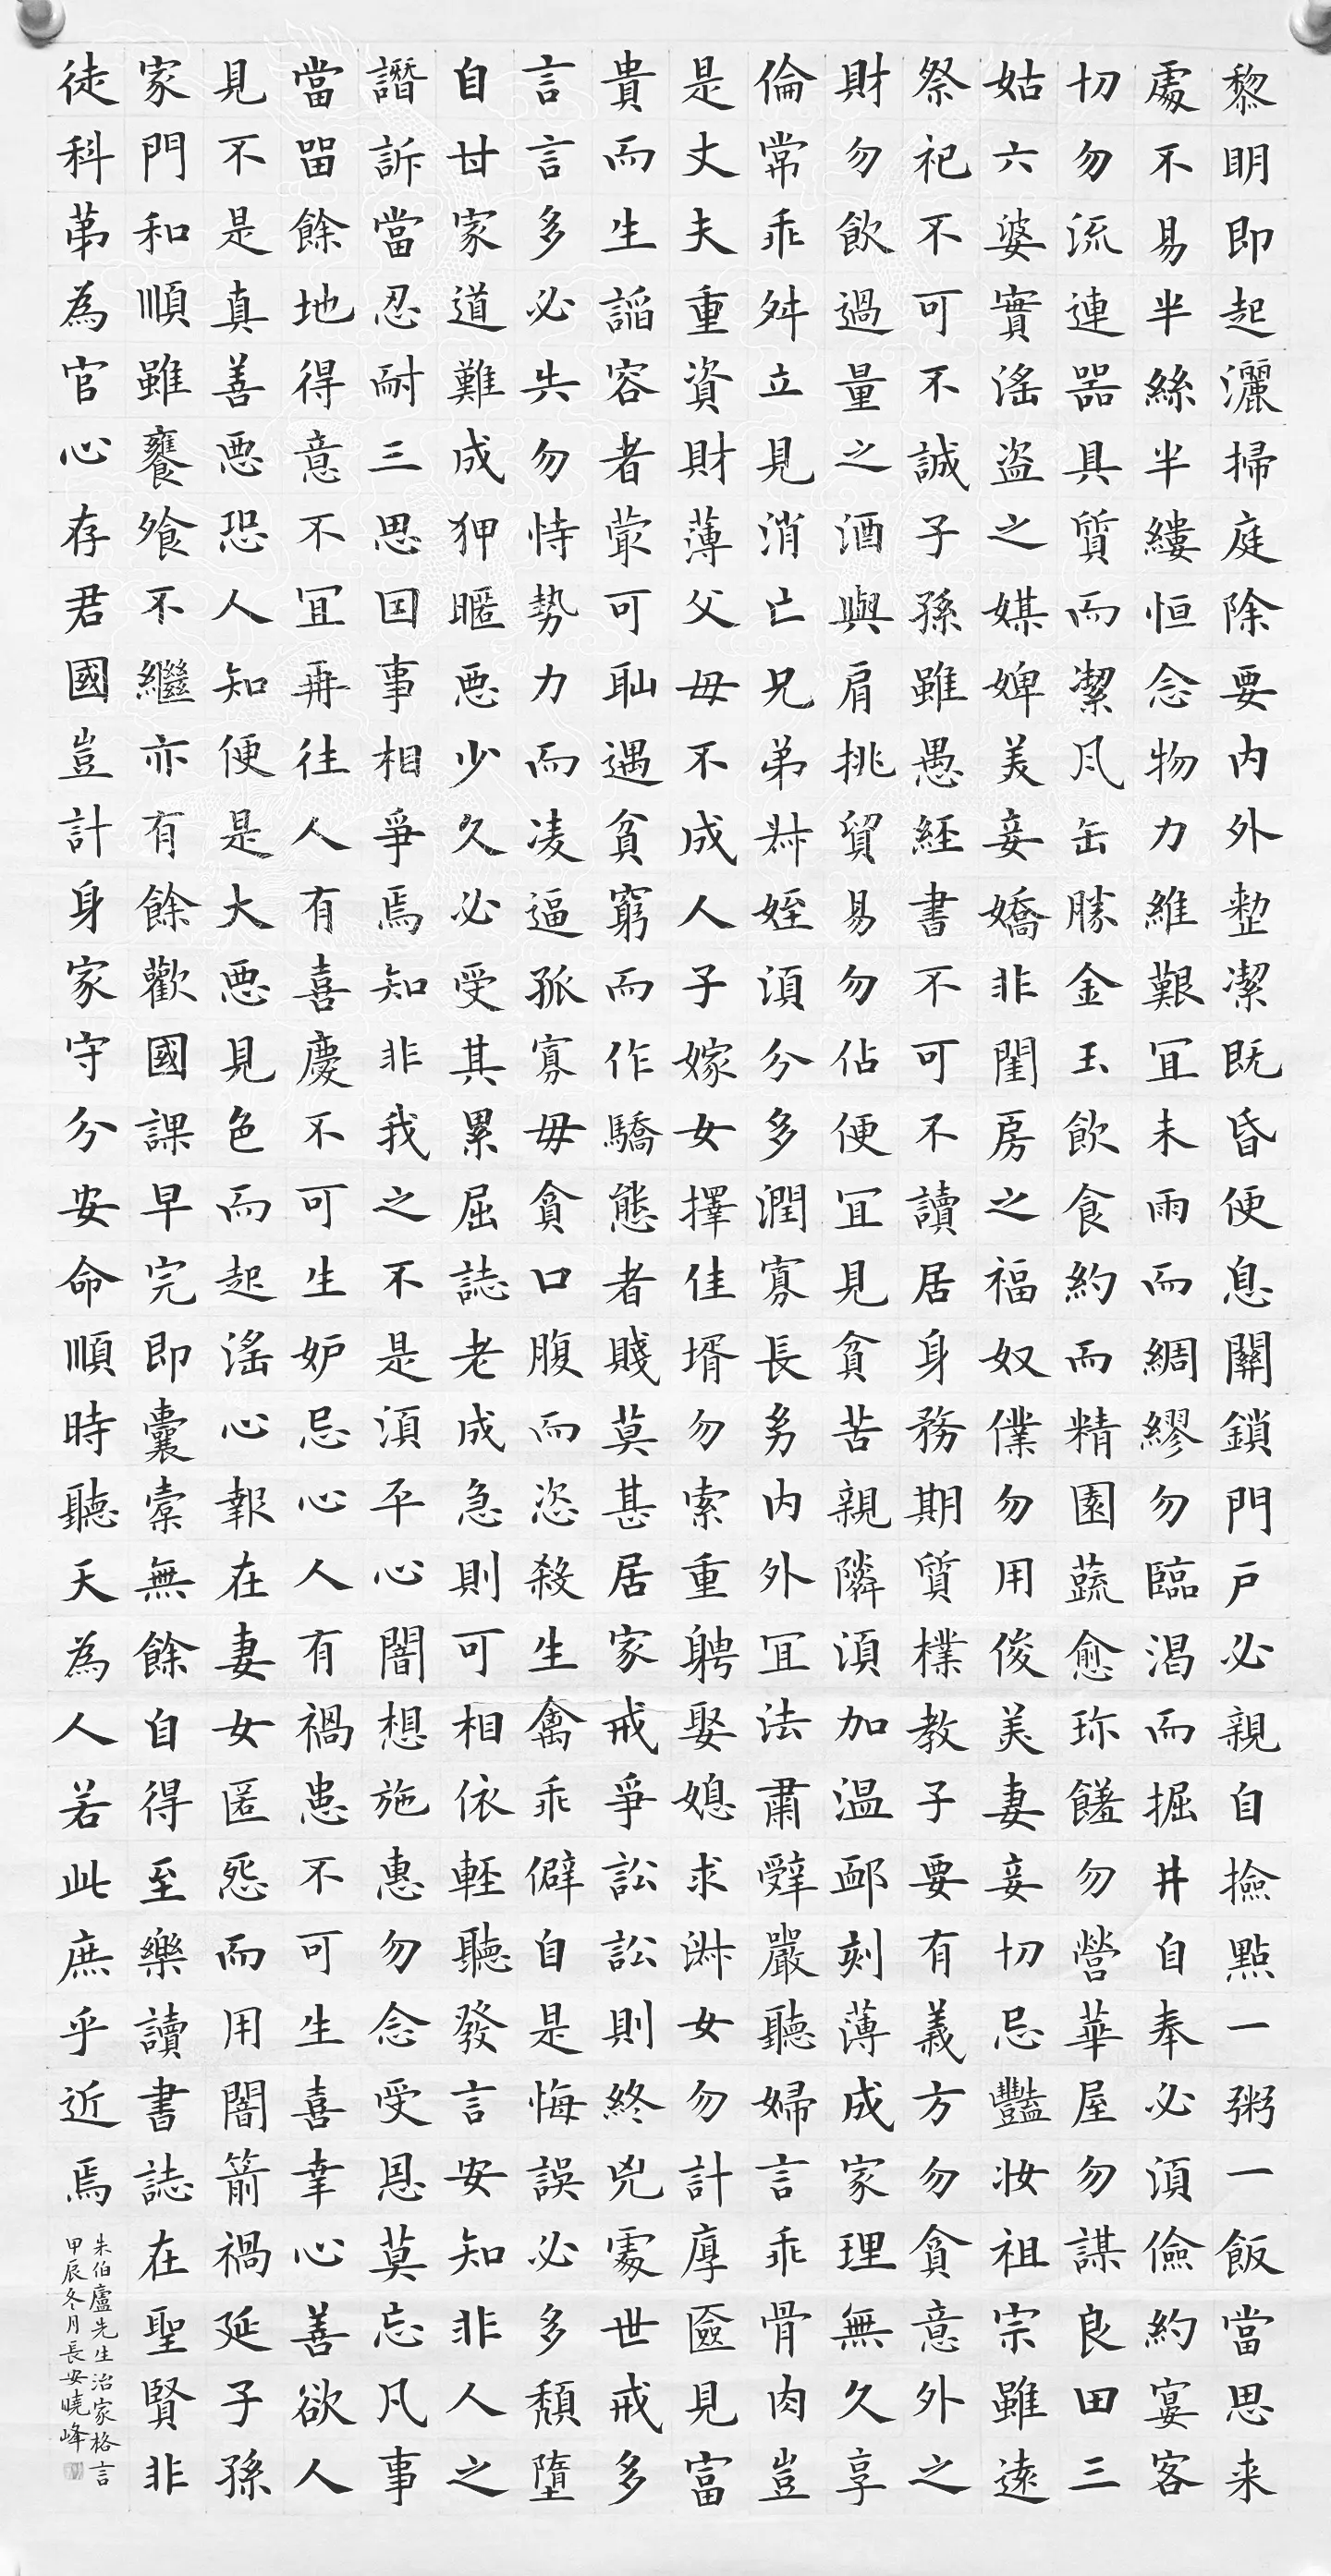 黎明即起灑掃庭除要内外整潔既昏便息關鎖門戶必親自撿點一粥一飯當思来
處不易半絲半縷恒念物力維艱宜未雨而綢繆勿臨渴而掘井自奉必須儉約宴客
切勿流連器具質而潔瓦缶勝金玉飲食約而精園蔬愈珍饈勿營華屋勿謀良田三
姑六婆實淫盜之媒婢美妾嬌非閨房之福奴僕勿用俊美妻妾切忌豔妆祖宗雖遠
祭祀不可不誠子孫雖愚經書不可不讀居身務期質樸教子要有義方勿貪意外之
財勿飲過量之酒與肩挑貿易勿佔便宜見貧苦親隣須加温卹刻薄成家理無久享
倫常乖舛立見消亡兄弟叔姪須分多潤寡長幼内外宜法肅辭嚴聽婦言乖骨肉豈
是丈夫重資財薄父母不成人子嫁女擇佳壻勿索重聘娶媳求淑女勿計厚匳見富
貴而生諂容者最可耻遇貧窮而作驕態者賤莫甚居家戒爭訟訟則終兇處世戒多
言言多必失勿恃勢力而凌逼孤寡毋貪口腹而恣殺生禽乖僻自是悔誤必多頹墮
自甘家道難成狎暱惡少久必受其累屈誌老成急則可相依輕聽發言安知非人之
譖訴當忍耐三思因事相爭焉知非我之不是須平心闇想施惠勿念受恩莫忘凡事
當留餘地得意不宜再往人有喜慶不可生妒忌心人有禍患不可生喜幸心善欲人
見不是真善惡恐人知便是大惡見色而起淫心報在妻女匿怨而用闇箭禍延子孫
家門和順雖饔飧不繼亦有餘歡國課早完即囊橐無餘自得至樂讀書誌在聖賢非
徒科第為官心存君國豈計身家守分安命順時聽天為人若此庶乎近焉
朱伯廬先生治家格言
甲辰冬月長安曉峰